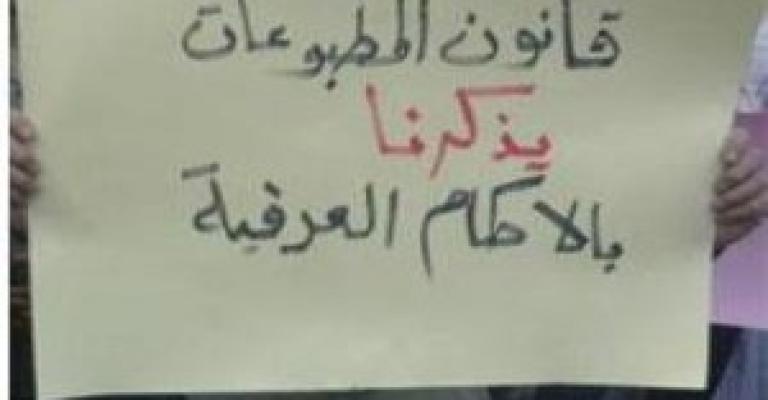 قانون المطبوعات
يذكرنا
بالاحكام العرفية